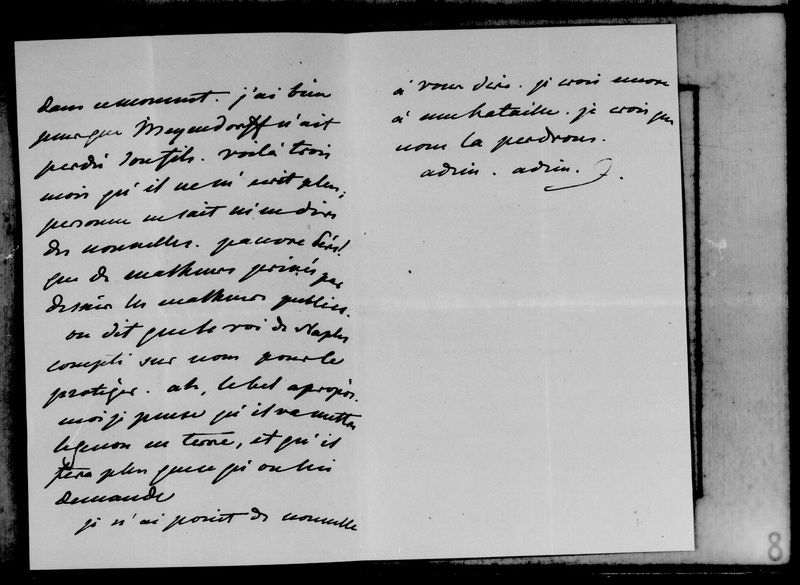 dans ce moment. j'ai bien
peur que Meyendorff n'ait
perdu son fils. voilà trois
mois qu'il ne m'ecrit plus,
personne ne sait m'en dire
des nouvelles. pauvre Père!
que de malheurs privés par
dessus les malheurs publics.
on dit que le roi de Naples
compte sur nous pour le
protéger. ah, le bel apropos.
moi je pense qu'il va mettre
le genou en terre, et qu'il
fera plus que ce qu'on lui
demande
je n'ai point de nouvelle
à vous dire. je crois encore
à une bataille. je crois que
nous la perdrons.
adieu. adieu.
8